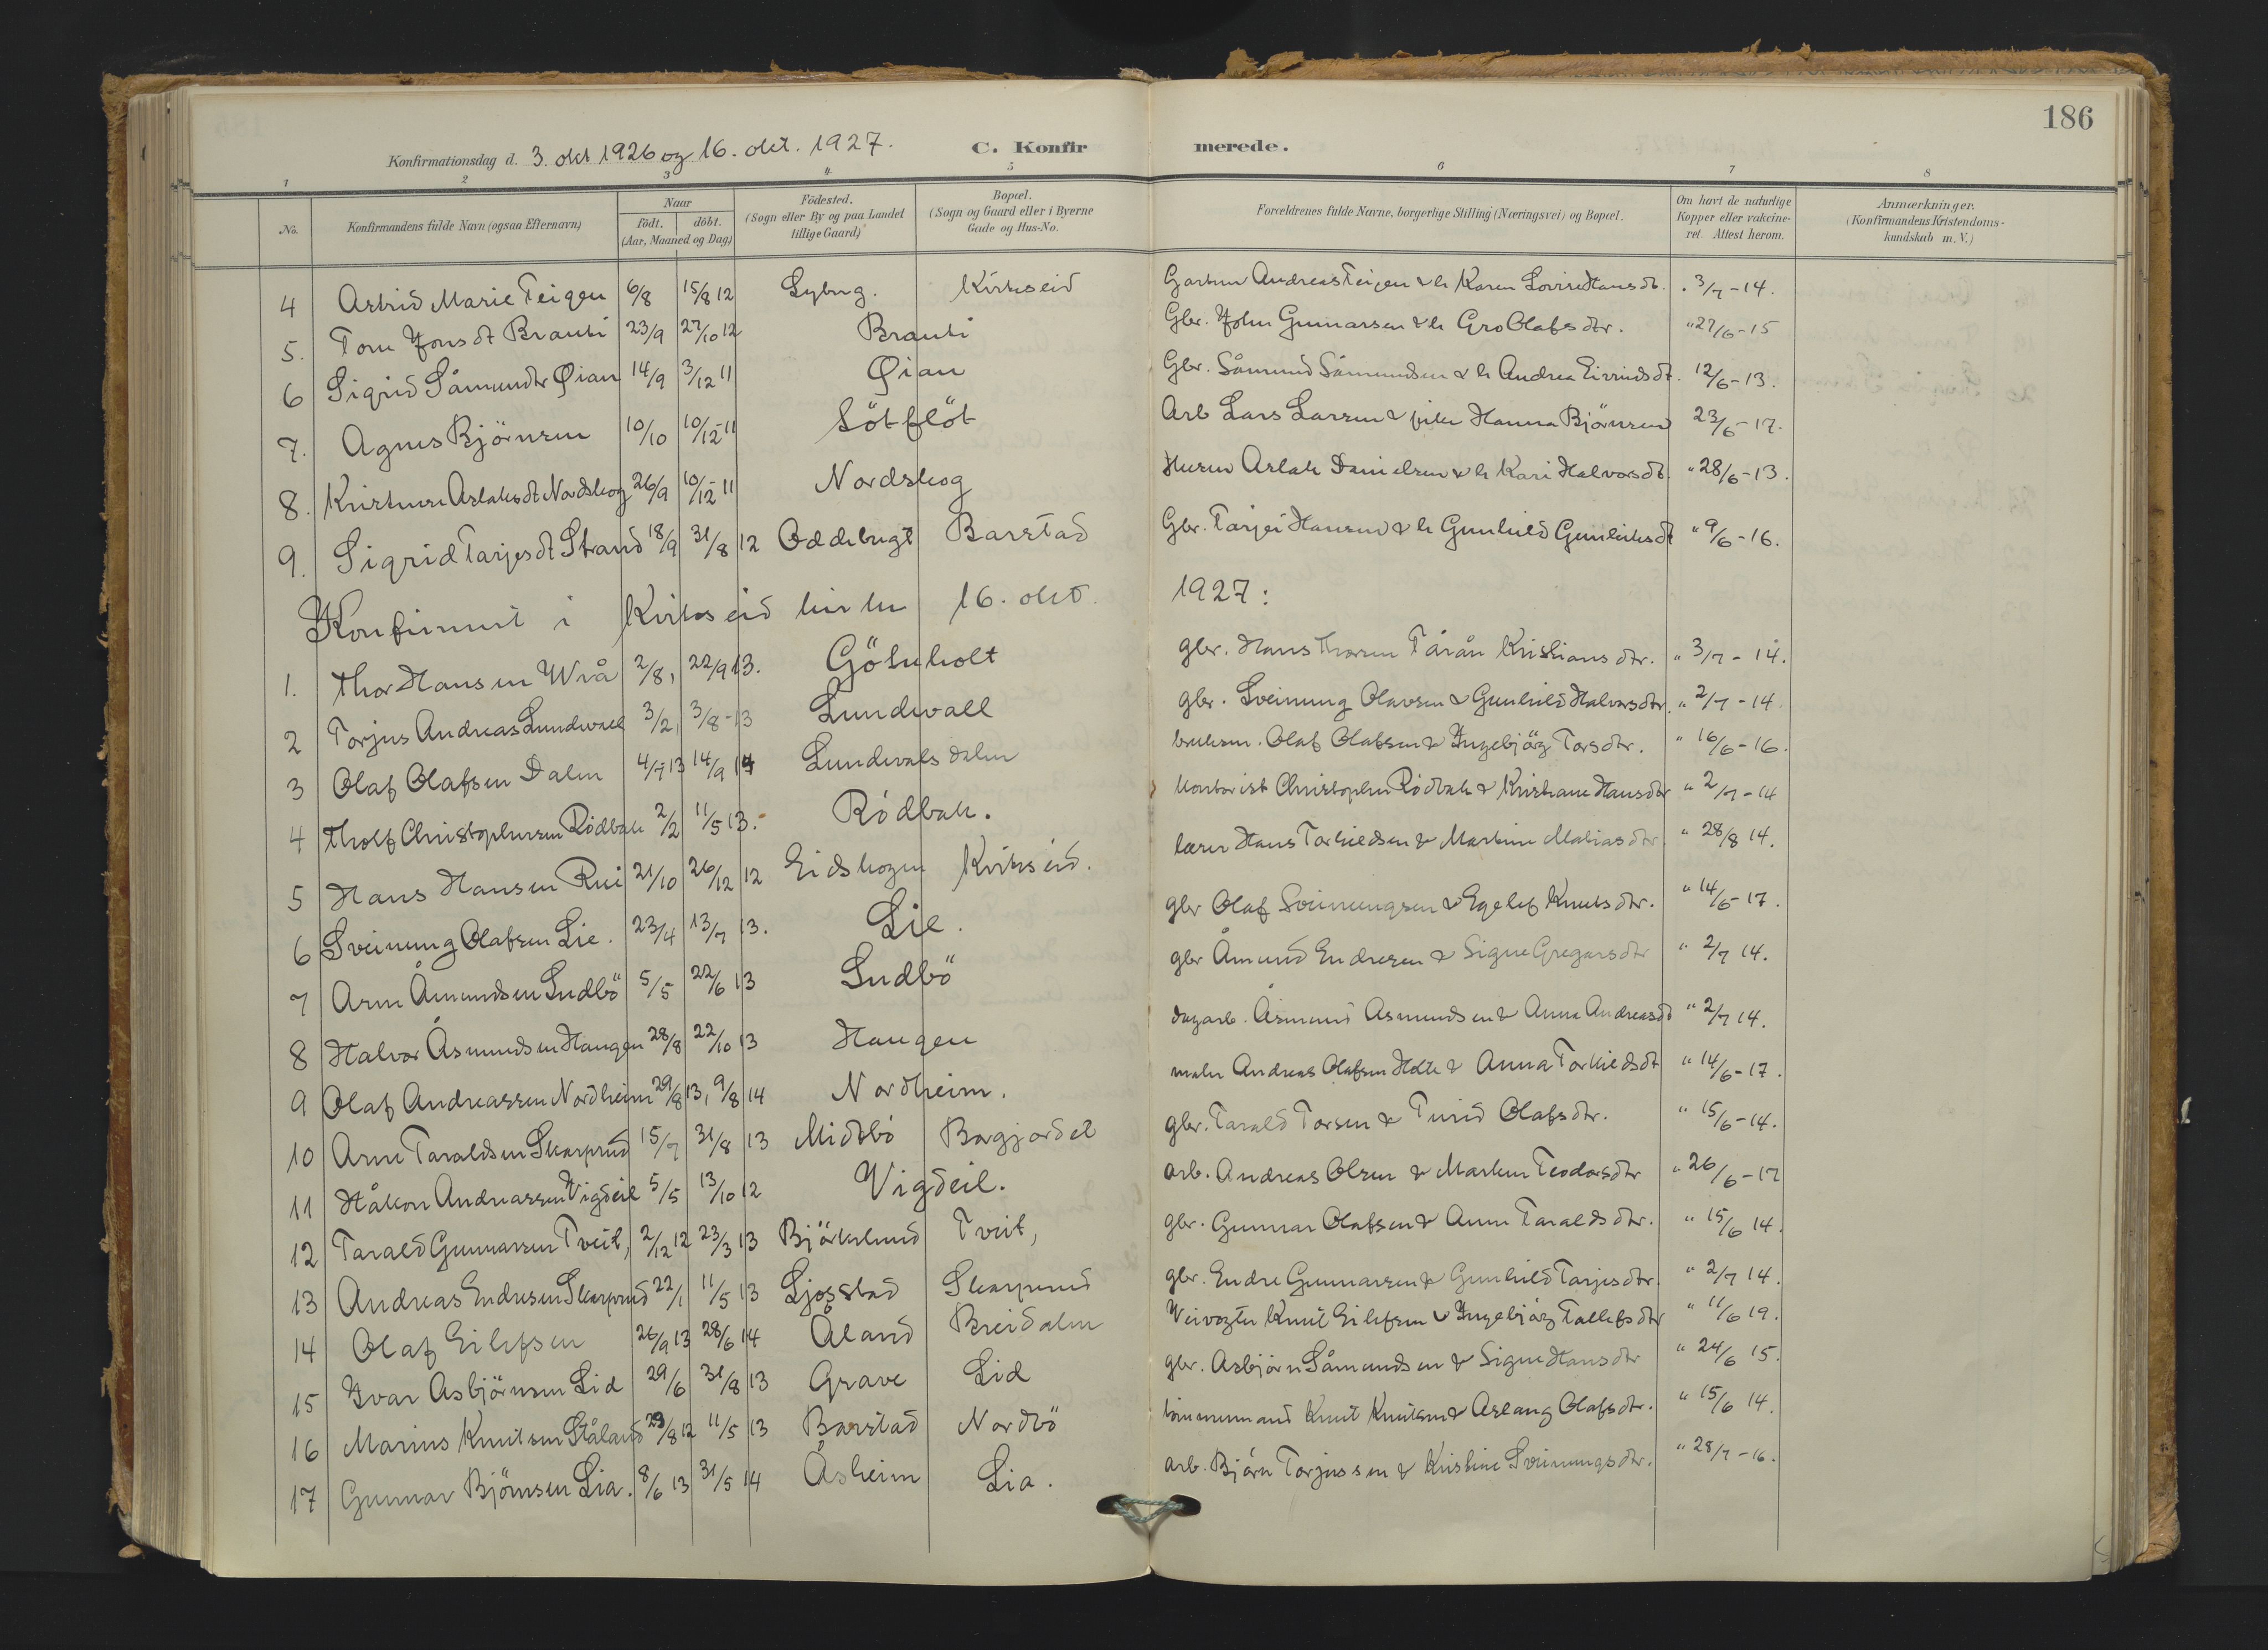 186
Konfirmationsdag d. 3. okt 1926 og 16. okt. 1927. C. Konfirmerede.
1 2 3 4 5 6 7 8
No. Konfirmandens fulde Navn (ogsaa Efternavn) Naar født. døbt. (Aar, Maaned og Dag) Födested. (Sogn eller By og paa Landet tillige Gaard) Bopæl. (Sogn og Gaard eller i Byerne Gade og Hus-No. Forældrenes fulde Navne, borgerlige Stilling (Næringsvei) og Bopæl. Om havt de naturlige Kopper eller vakcineret. Attest herom. Anmærkninger. (Konfirmandens Kristendomskundskab m. V.)
4 Astrid Marie Teigen 6/8 15/8 12 Lybug. Kirkseid Andreas Teigen & h Karen Lovise Hansdt. 3/7-14.
5. Tone Jonsdt Brauti 23/9 27/10 12 Brauti Gbr. John Gunnarsen & h Gro Olafsdtr. " 27/6-15
6 Sigrid Såmundtr Øian 14/9 3/12 11 Øian Gbr. Såmund Såmundsen & h Andrea Eivindsdt. 12/6-13.
7. Agnes Björnsen 10/10 10/12-11 Sötflöt Arb Lars Larsen & pike Hanna Björnsen 23/6-17.
8. Kristine Aslaksdt Nordskog 26/9 10/12-11 Nordskog Husm Aslak Danielsen & h Kari Halvorsdt. " 28/6-13.
9. Sigrid Tarjesdt Strand 18/9 31/8 12 Oddebugt Barstad Gbr. Tarjei Hansen & h Gunhild Gunleiksdt " 9/6-16.
Konfirmert i Kirkseid kirke 16. okt. 1927:
1. Thor Hansen Wrå 2/8, 22/9 13. Götuholt gbr. Hans Thorsen Tårån Kristiansdtr. " 3/7-14.
2 Torjus Andreas Lundevall 3/2, 3/8-13 Lundevall gbr. Sveinung Olavsen & Gunhild Halvorsdtr. " 2/7-14.
3 Olaf Olafsen Dalen 4/7 13 14/9 14 Lundevalsdalen bruksm. Olaf Olafsen & Ingebjörg Torsdtr. " 16/6-16.
4 Tholf Christophersen Rödbak 2/2 11/5 13. Rödbak. kontorist Christopher Rödbak & Kristiane Hansdtr " 2/7-14
5 Hans Hansen Rui 21/10 26/12 12 Eidskogen Kirkseid. lærer Hans Torkildsen & Martine Matiasdtr. " 28/8 14.
6 Sveinung Olafsen Lie. 23/4 13/7 13. Lie. gbr Olaf Sveinungsen & Egelef Knutsdtr. " 14/6-17.
7 Arne Åmundsen Sudbö 5/5 22/6 13 Sudbö gbr Åmund Endresen & Signe Gregarsdtr " 2/7 14.
8 Halvor Åsmundsen Haugen 28/8 22/10 13 Haugen dagarb. Åsmund Asmundsen & Anna Andreasdt " 2/7 14.
9 Olaf Andreassen Nordheim 29/8 13, 9/8 14 Nordheim. maler Andreas Olafsen Holte & Anna Torkildsdt " 14/6-17.
10 Arne Taraldsen Skarprud 15/7 31/8 13 Midtbö Borgjordet gbr. Tarald Torsen & Turid Olafsdtr. " 15/6-14.
11 Håkon Andreassen Vigdeil 5/5 13/10 12 Vigdeil. arb. Andreas Olsen & Marken Teodorsdtr " 26/6-17
12 Tarald Gunnarsen Tveit, 2/12 12 23/3 13 Björkelund Tveit, gbr. Gunnar Olafsen & Anne Taraldsdtr. " 15/6 14.
13 Andreas Endresen Skarprud 22/1 11/5 13 Ljosstad Skarprud gbr. Endre Gunnarsen & Gunhild Tarjesdtr. " 2/7 14.
14 Olaf Eilefsen 26/9 13 28/6 14 Åland Breidalen Veivogter Knut Eilefsen & Ingebjörg Tallefsdtr " 11/6 19.
15 Ivar Asbjörnsen Lid 29/6 31/8 13 Grave Lid gbr. Asbjörn Såmundsen & Signe Hansdtr " 24/6 15.
16 Marius Knutsen Ståland 29/8 12 11/5 13 Barstad Nordbö tömmermand Knut Knutsen & Aslaug Olafsdtr. " 15/6 14.
17 Gunnar Björnsen Lia. 8/6 13 31/5 14 Åsheim Lia. arb. Björn Torjussen & Kristine Sveinungsdtr. " 28/7-16.